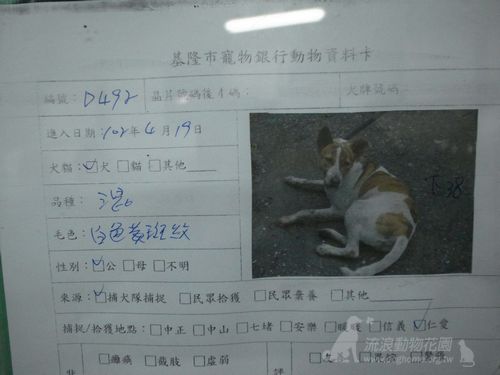 基隆市寵物銀行動物資料卡
編號：D492 晶片號碼後4碼： 犬牌號碼：
進入日期：102年4月19日
犬貓：☑犬 ☐貓 ☐其他
品種：混
毛色：白色黃斑紋
性別：☑公 ☐母 ☐不明
來源：☑捕犬隊捕捉 ☐民眾拾獲 ☐民眾棄養 ☐其他
捕捉/拾獲地點：☐中正 ☐中山 ☐七堵 ☐安樂 ☐暖暖 ☐信義 ☑仁愛
☐癱瘓 ☐截肢 ☐虛弱
流浪動物花園